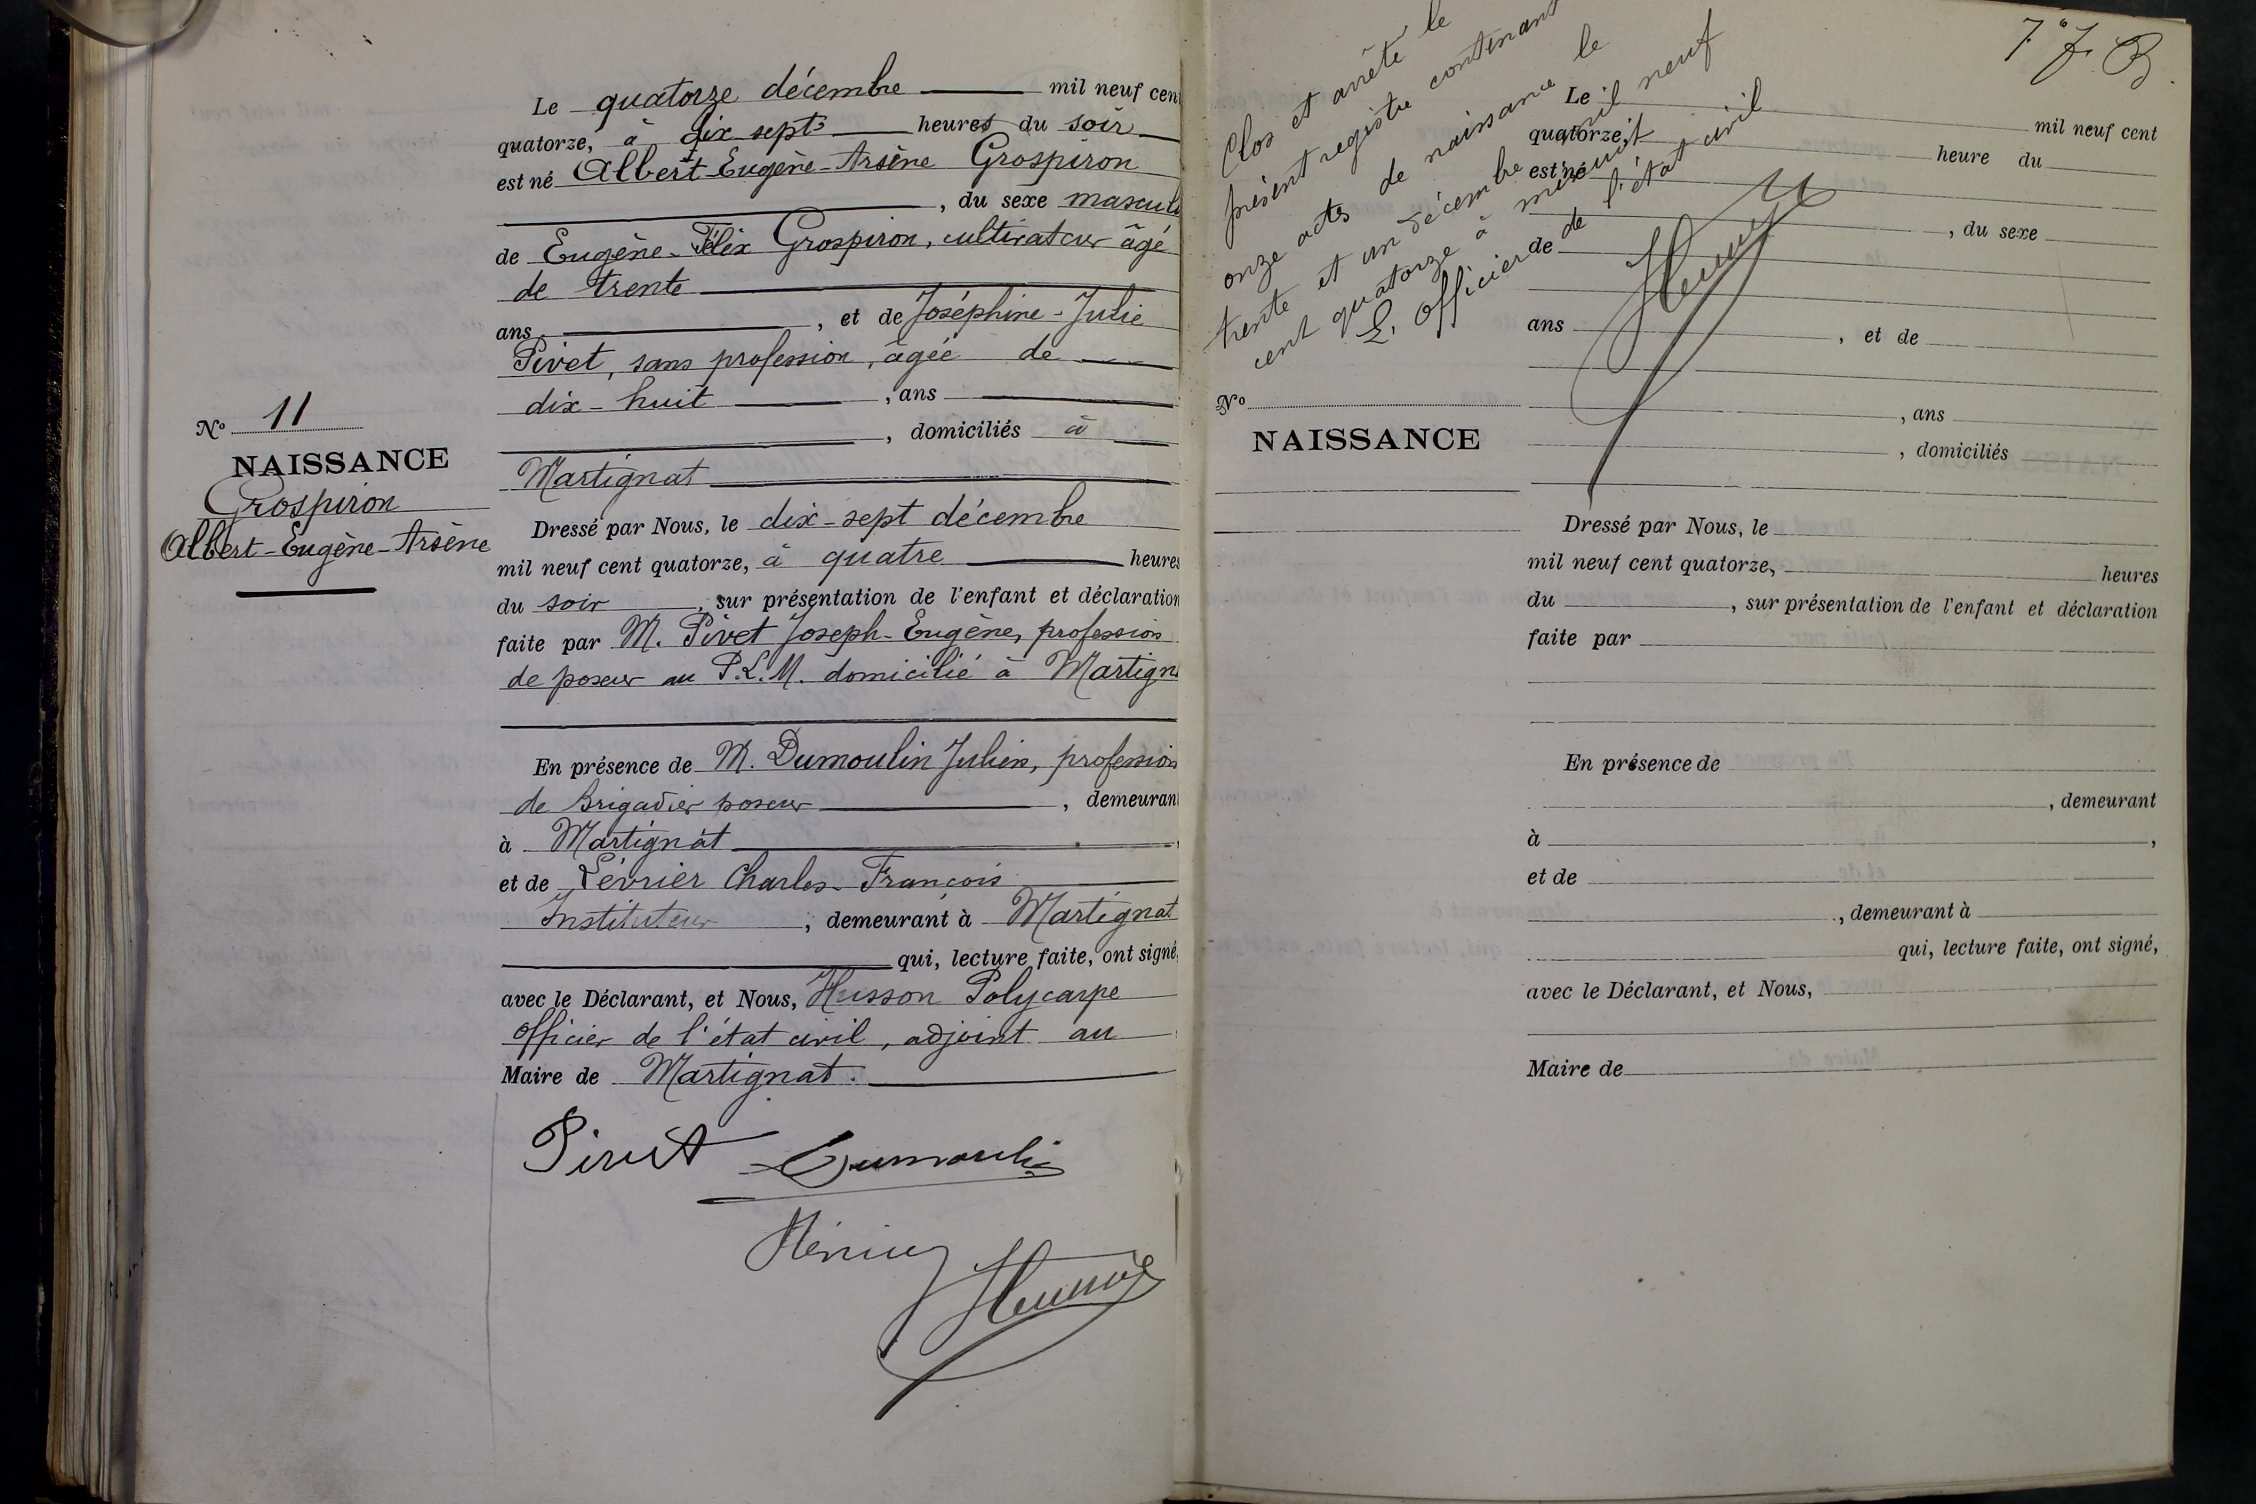 N° 11
NAISSANCE
Grospiron
Albert-Eugène-Arsène
Le quatorze décembre mil neuf cen
quatorze, à dix sept heures du soir
est né Albert-Eugène-Arsène Grospiron
, du sexe mascul
de Eugène-Félix Grospiron, cultivateur âgé
de trente
ans , et de Joséphine-Julie
Pivet, sans profession, âgée de
dix-huit , ans
, domiciliés à
Martignat
Dressé par Nous, le dix-sept décembre
mil neuf cent quatorze, à quatre heures
du soir , sur présentation de l'enfant et déclaration
faite par M. Pivet Joseph-Eugène, profession
de poseur au P.L.M. domicilié à Martign
En présence de M. Dumoulin Julien, profession
de brigadier poseur , demeuran
à Martignat
et de Charles-François
Instituteur , demeurant à Martignat
qui, lecture faite, ont signé,
avec le Déclarant, et Nous, Husson Polycarpe
officier de l'état civil, adjoint au
Maire de Martignat.
Pivet Dumoulin
7e f. B.
Clos et arrêté le
présent registre contenant
onze actes de naissance le
trente et un décembre mil neuf
cent quatorze à minuit
L'officier de l'état civil
N°
NAISSANCE
Le mil neuf cent
quatorze, heure du
est né
, du sexe
de
ans , et de
, ans
, domiciliés
Dressé par Nous, le
mil neuf cent quatorze, heures
du , sur présentation de l'enfant et déclaration
faite par
En présence de
, demeurant
à ,
et de
, demeurant à
qui, lecture faite, ont signé,
avec le Déclarant, et Nous,
Maire de